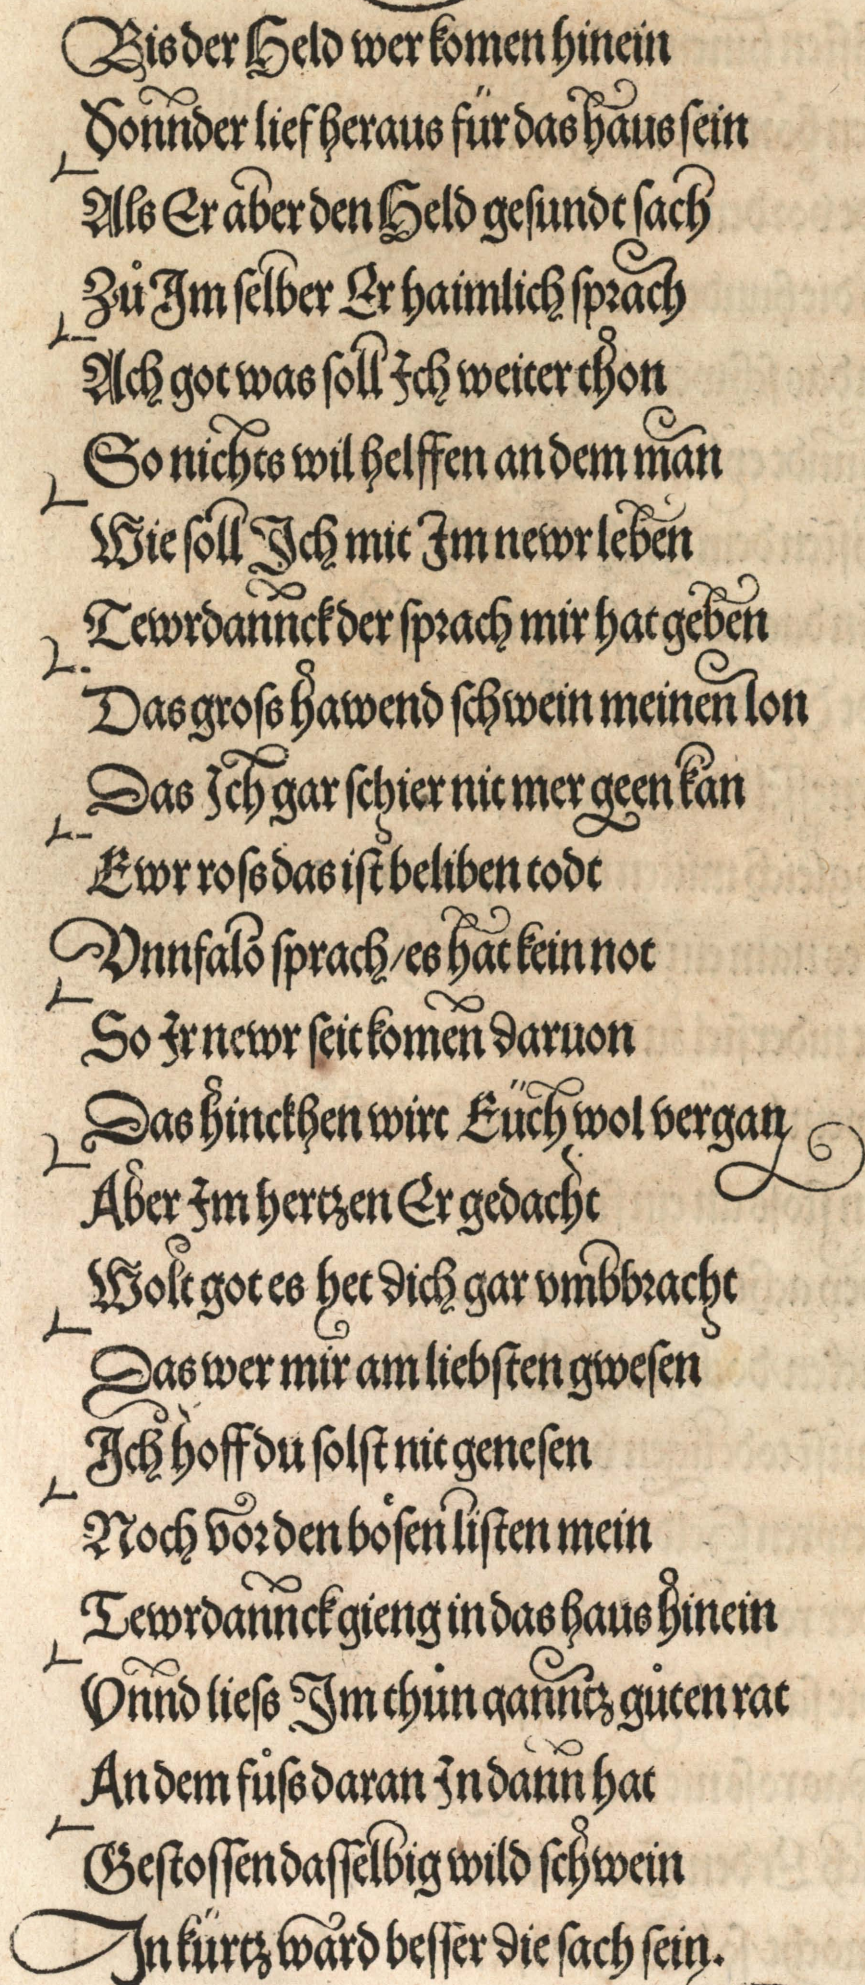 Bis der Held wer komen hinein
Sonnder lief heraus für das haus sein
Als Er aber den Held gesundt sach
Zů Im selber Er haimlich sprach
Ach got was soll Ich weiter thon
So nichts wil helffen an dem man
Wie soll Ich mit Im newr leben
Tewrdannck der sprach mir hat geben
Das gross hawend schwein meinen lon
Das Ich gar schier nit mer geen kan
Ewr ross das ist beliben todt
Vnnfalo sprach/ es hat kein not
So Ir newr seit komen daruon
Das hinckhen wirt Eüch wol vergan
Aber Im hertzen Er gedacht
Wolt got es het dich gar vmbbracht
Das wer mir am liebsten gwesen
Ich hoff du solst nit genesen
Noch vor den bösen listen mein
Tewrdannck gieng in das haus hinein
Vnnd liess Im thůn ganntz gůten rat
An dem fůss daran In dann hat
Gestossen dasselbig wild schwein
In kürtz ward besser die sach sein.